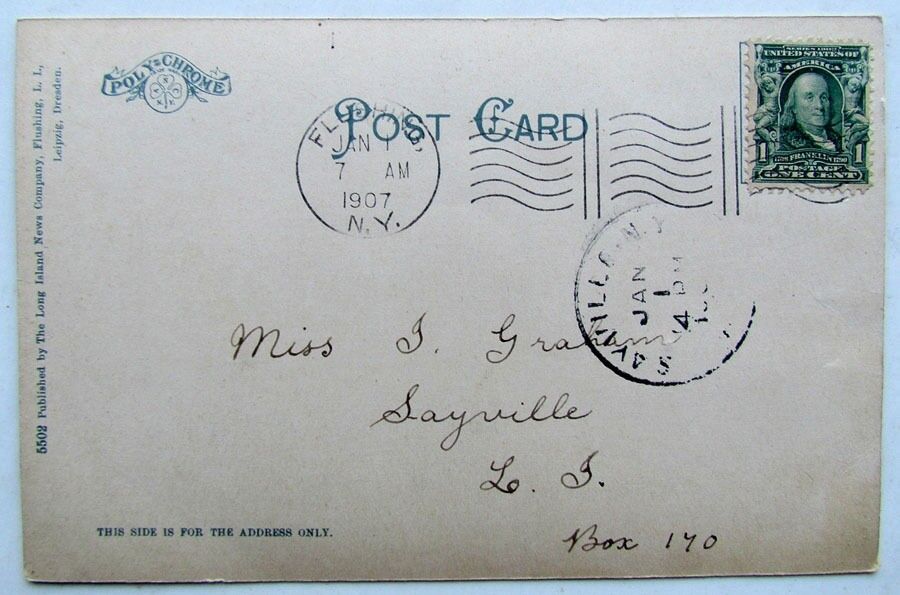 POLY-CHROME
POST CARD
FLUSHING,
JAN 1
7 AM
1907
N.Y.
SERIES 1902
UNITED STATES OF
AMERICA
1 1706 FRANKLIN 1790 1
POSTAGE
ONE CENT
SAYVILLE N.Y.
JAN
1
4 PM
Miss I. Graham
Sayville
L. I.
Box 170
5502 Published by The Long Island News Company, Flushing, L. I.,
Leipzig, Dresden.
THIS SIDE IS FOR THE ADDRESS ONLY.